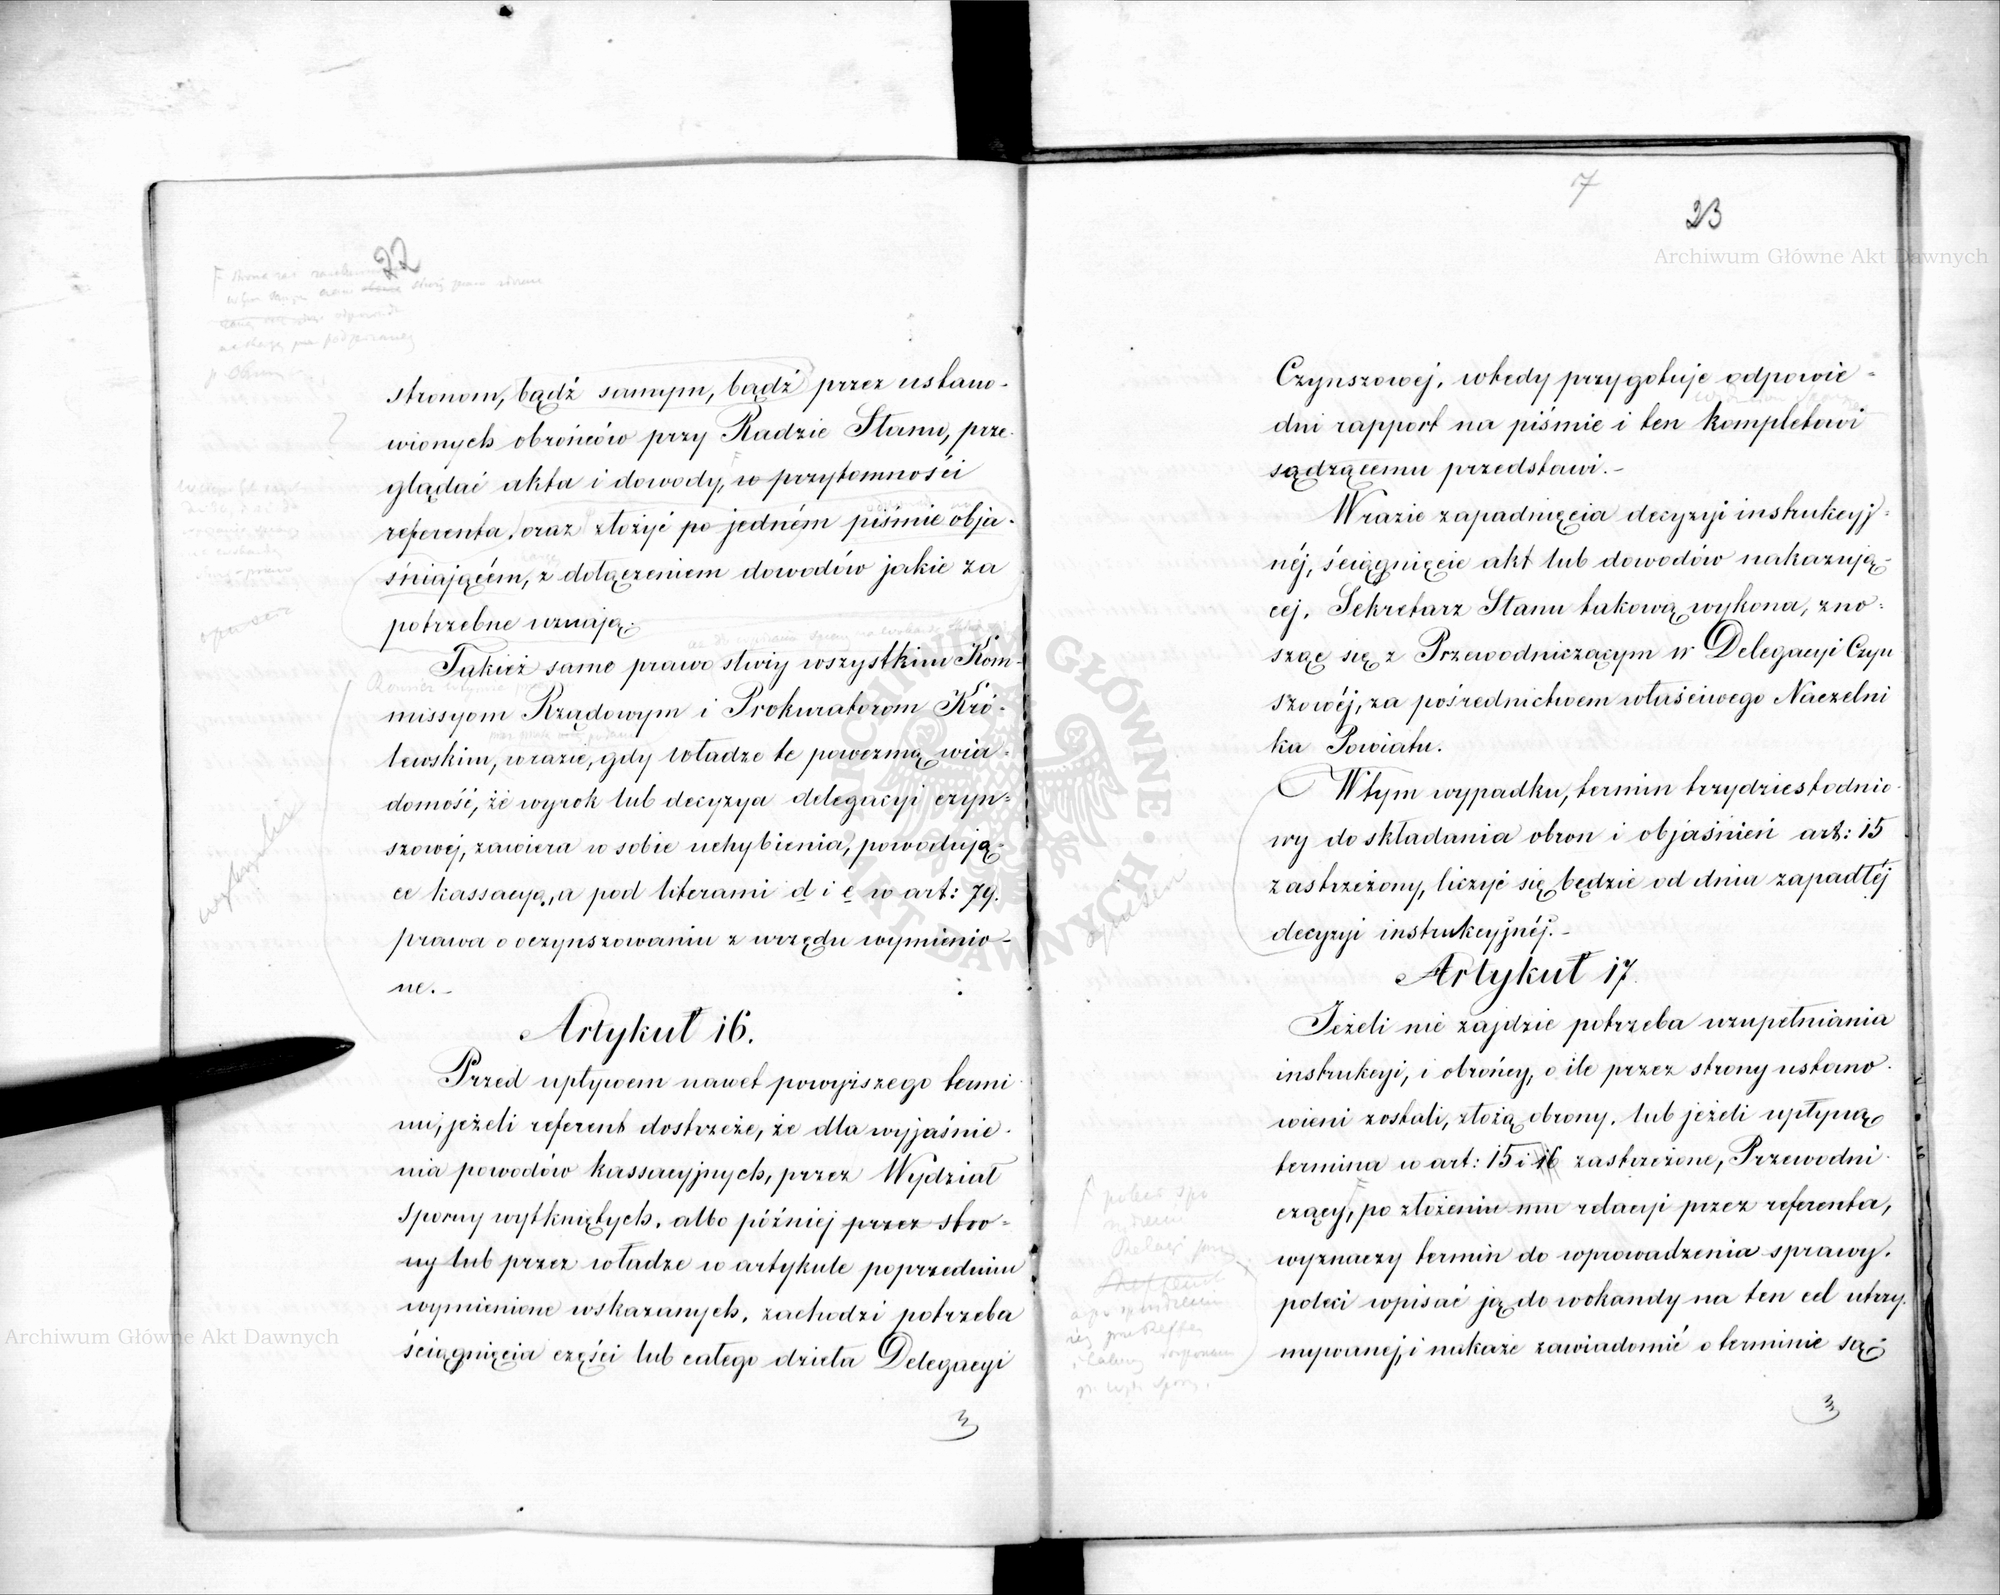 22
stronom, bądź samym, bądź przez ustano-
wionych obrońców przy Radzie Stanu, prze-
glądać akta i dowody, w przytomności
referenta, oraz złożyć po jedném piśmie obja-
śniającém, z dołączeniem dowodów jakie za
potrzebne uznają.
Takież samo prawo służy wszystkim Kom-
missyom Rządowym i Prokuratorom Kró-
lewskim, wrazie, gdy władze te powezmą wia-
domość, że wyrok lub decyzya delegacyi czyn-
szowej, zawiera w sobie uchybienia, powodują-
ce kassacyą, a pod literami d i e w art: 79.
prawa o oczynszowaniu z urzędu wymienio-
ne.-
Artykuł 16.
Przed upływem nawet powyższego termi-
nu, jeżeli referent dostrzeże, że dla wyjaśnie-
nia powodów kassacyjnych, przez Wydział
Sporny wytkniętych, albo później przez stro-
ny lub przez władze w artykule poprzednim
wymienione wskazanych, zachodzi potrzeba
ściągnięcia części lub całego dzieła Delegacyi
3
7
23
Czynszowej, wtedy przygotuje odpowie-
dni rapport na piśmie i ten kompletowi
sądzącemu przedstawi.-
Wrazie zapadnięcia decyzyi instrukcyj-
néj, ściągnięcie akt lub dowodów nakazują-
cej, Sekretarz Stanu takową wykona, zno-
sząc się z Przewodniczącym w Delegacyi Czyn
szowéj, za pośrednictwem właściwego Naczelni
ka Powiatu.
W tym wypadku, termin trzydziestodnio-
wy do składania obron i objaśnień art: 15
zastrzeżony, liczyć się będzie od dnia zapadłéj
decyzyi instrukcyjnéj.-
Artykuł 17.
Jeżeli nie zajdzie potrzeba uzupełniania
instrukcyi, i obrońcy, o ile przez strony ustano-
wieni zostali, złożą obrony, lub jeżeli upłyną
termina w art: 15 i 16 zastrzeżone, Przewodni-
czący, po złożeniu mu relacyi przez referenta,
wyznaczy termin do wprowadzenia sprawy,
poleci wpisać ją do wokandy na ten cel utrzy-
mywanej, i nakaże zawiadomić o terminie są-
3
Archiwum Główne Akt Dawnych
Archiwum Główne Akt Dawnych
ARCHIWUM GŁÓWNE AKT DAWNYCH